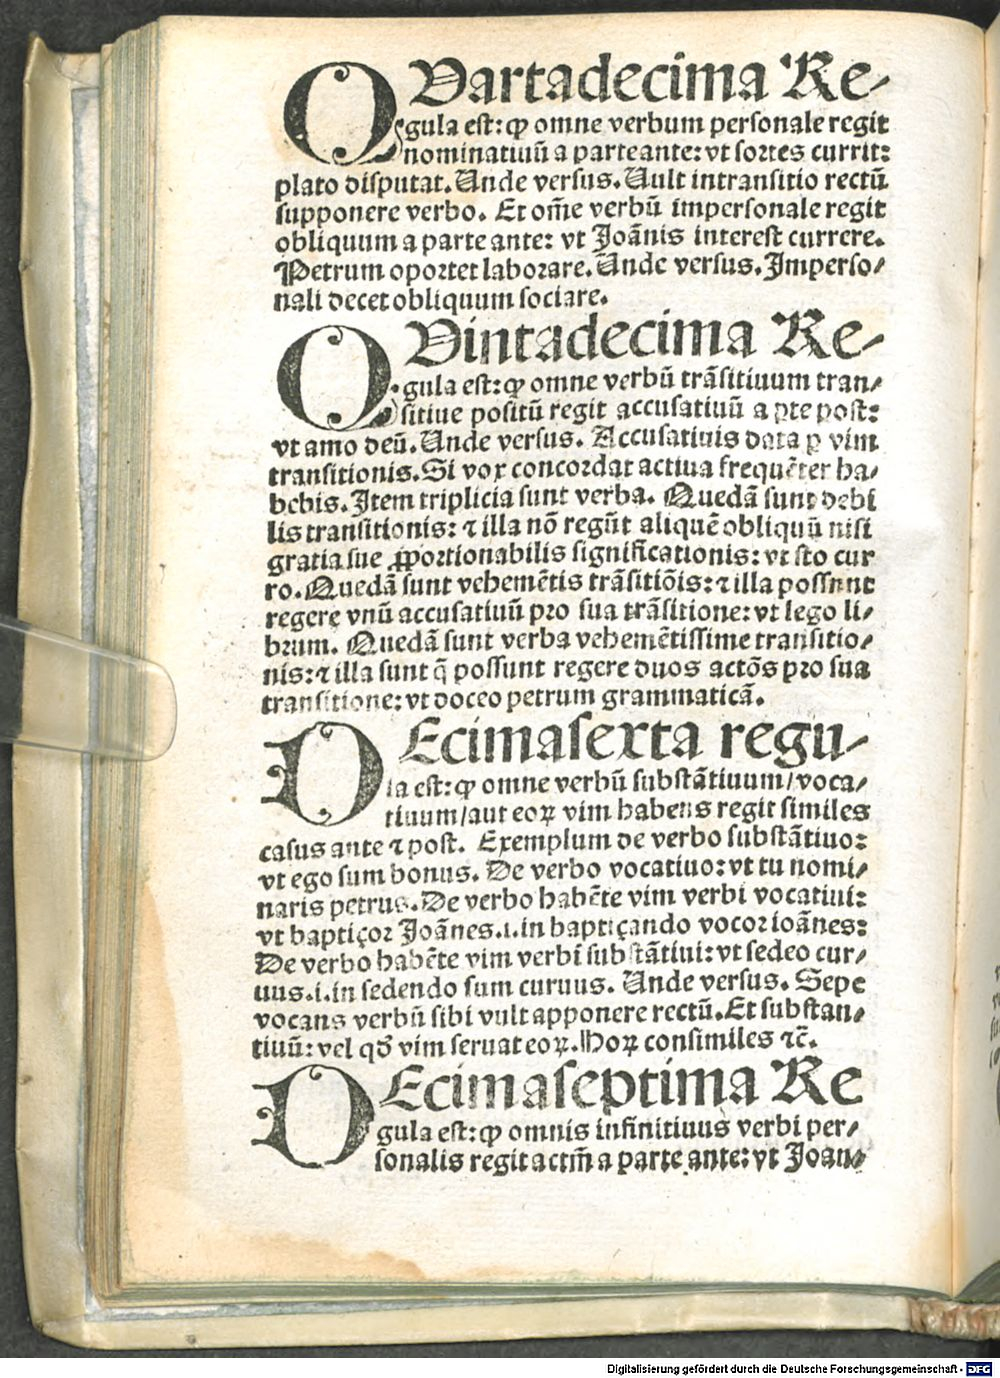 QVartadecima Re-
gula est: ꝙ omne verbum personale regit
nominatiuū a parte ante: vt sortes currit:
plato disputat. Unde versus. Uult intransitio rectū
supponere verbo. Et om̄e verbū impersonale regit
obliquum a parte ante: vt Joānis interest currere.
Petrum oportet laborare. Unde versus. Imperso⸗
nali decet obliquum sociare.
QVintadecima Re-
gula est: ꝙ omne verbū trāsitiuum tran⸗
sitiue positū regit accusatiuū a ꝑte post:
vt amo deū. Unde versus. Accusatiuis data ꝑ vim
transitionis. Si vox concordat actiua frequēter ha⸗
bebis. Item triplicia sunt verba. Quedā sunt debi
lis transitionis: ⁊ illa nō regūt aliquē obliquū nisi
gratia sue ꝓportionabilis significationis: vt sto cur
ro. Quedā sunt vehemētis trāsitiōis: ⁊ illa possunt
regere vnū accusatiuū pro sua trāsitione: vt lego li⸗
brum. Quedā sunt verba vehemētissime transitio⸗
nis: ⁊ illa sunt q̄ possunt regere duos actōs pro sua
transitione: vt doceo petrum grammaticā.
DEcimasexta regu-
la est: ꝙ omne verbū substātiuum/ voca⸗
tiuum/ aut eoꝝ vim habens regit similes
casus ante ⁊ post. Exemplum de verbo substātiuo:
vt ego sum bonus. De verbo vocatiuo: vt tu nomi⸗
naris petrus. De verbo habēte vim verbi vocatiui:
vt baptiçor Joānes .i. in baptiçando vocor ioānes:
De verbo habēte vim verbi substātiui: vt sedeo cur⸗
uus .i. in sedendo sum curuus. Unde versus. Sepe
vocans verbū sibi vult apponere rectū. Et substan⸗
tiuū: vel qđ vim seruat eoꝝ. Hoꝝ consimiles ⁊c̄.
DEcimaseptima Re
gula est: ꝙ omnis infinitiuus verbi per⸗
sonalis regit actm̄ a parte ante: vt Joan⸗
Digitalisierung gefördert durch die Deutsche Forschungsgemeinschaft - DFG